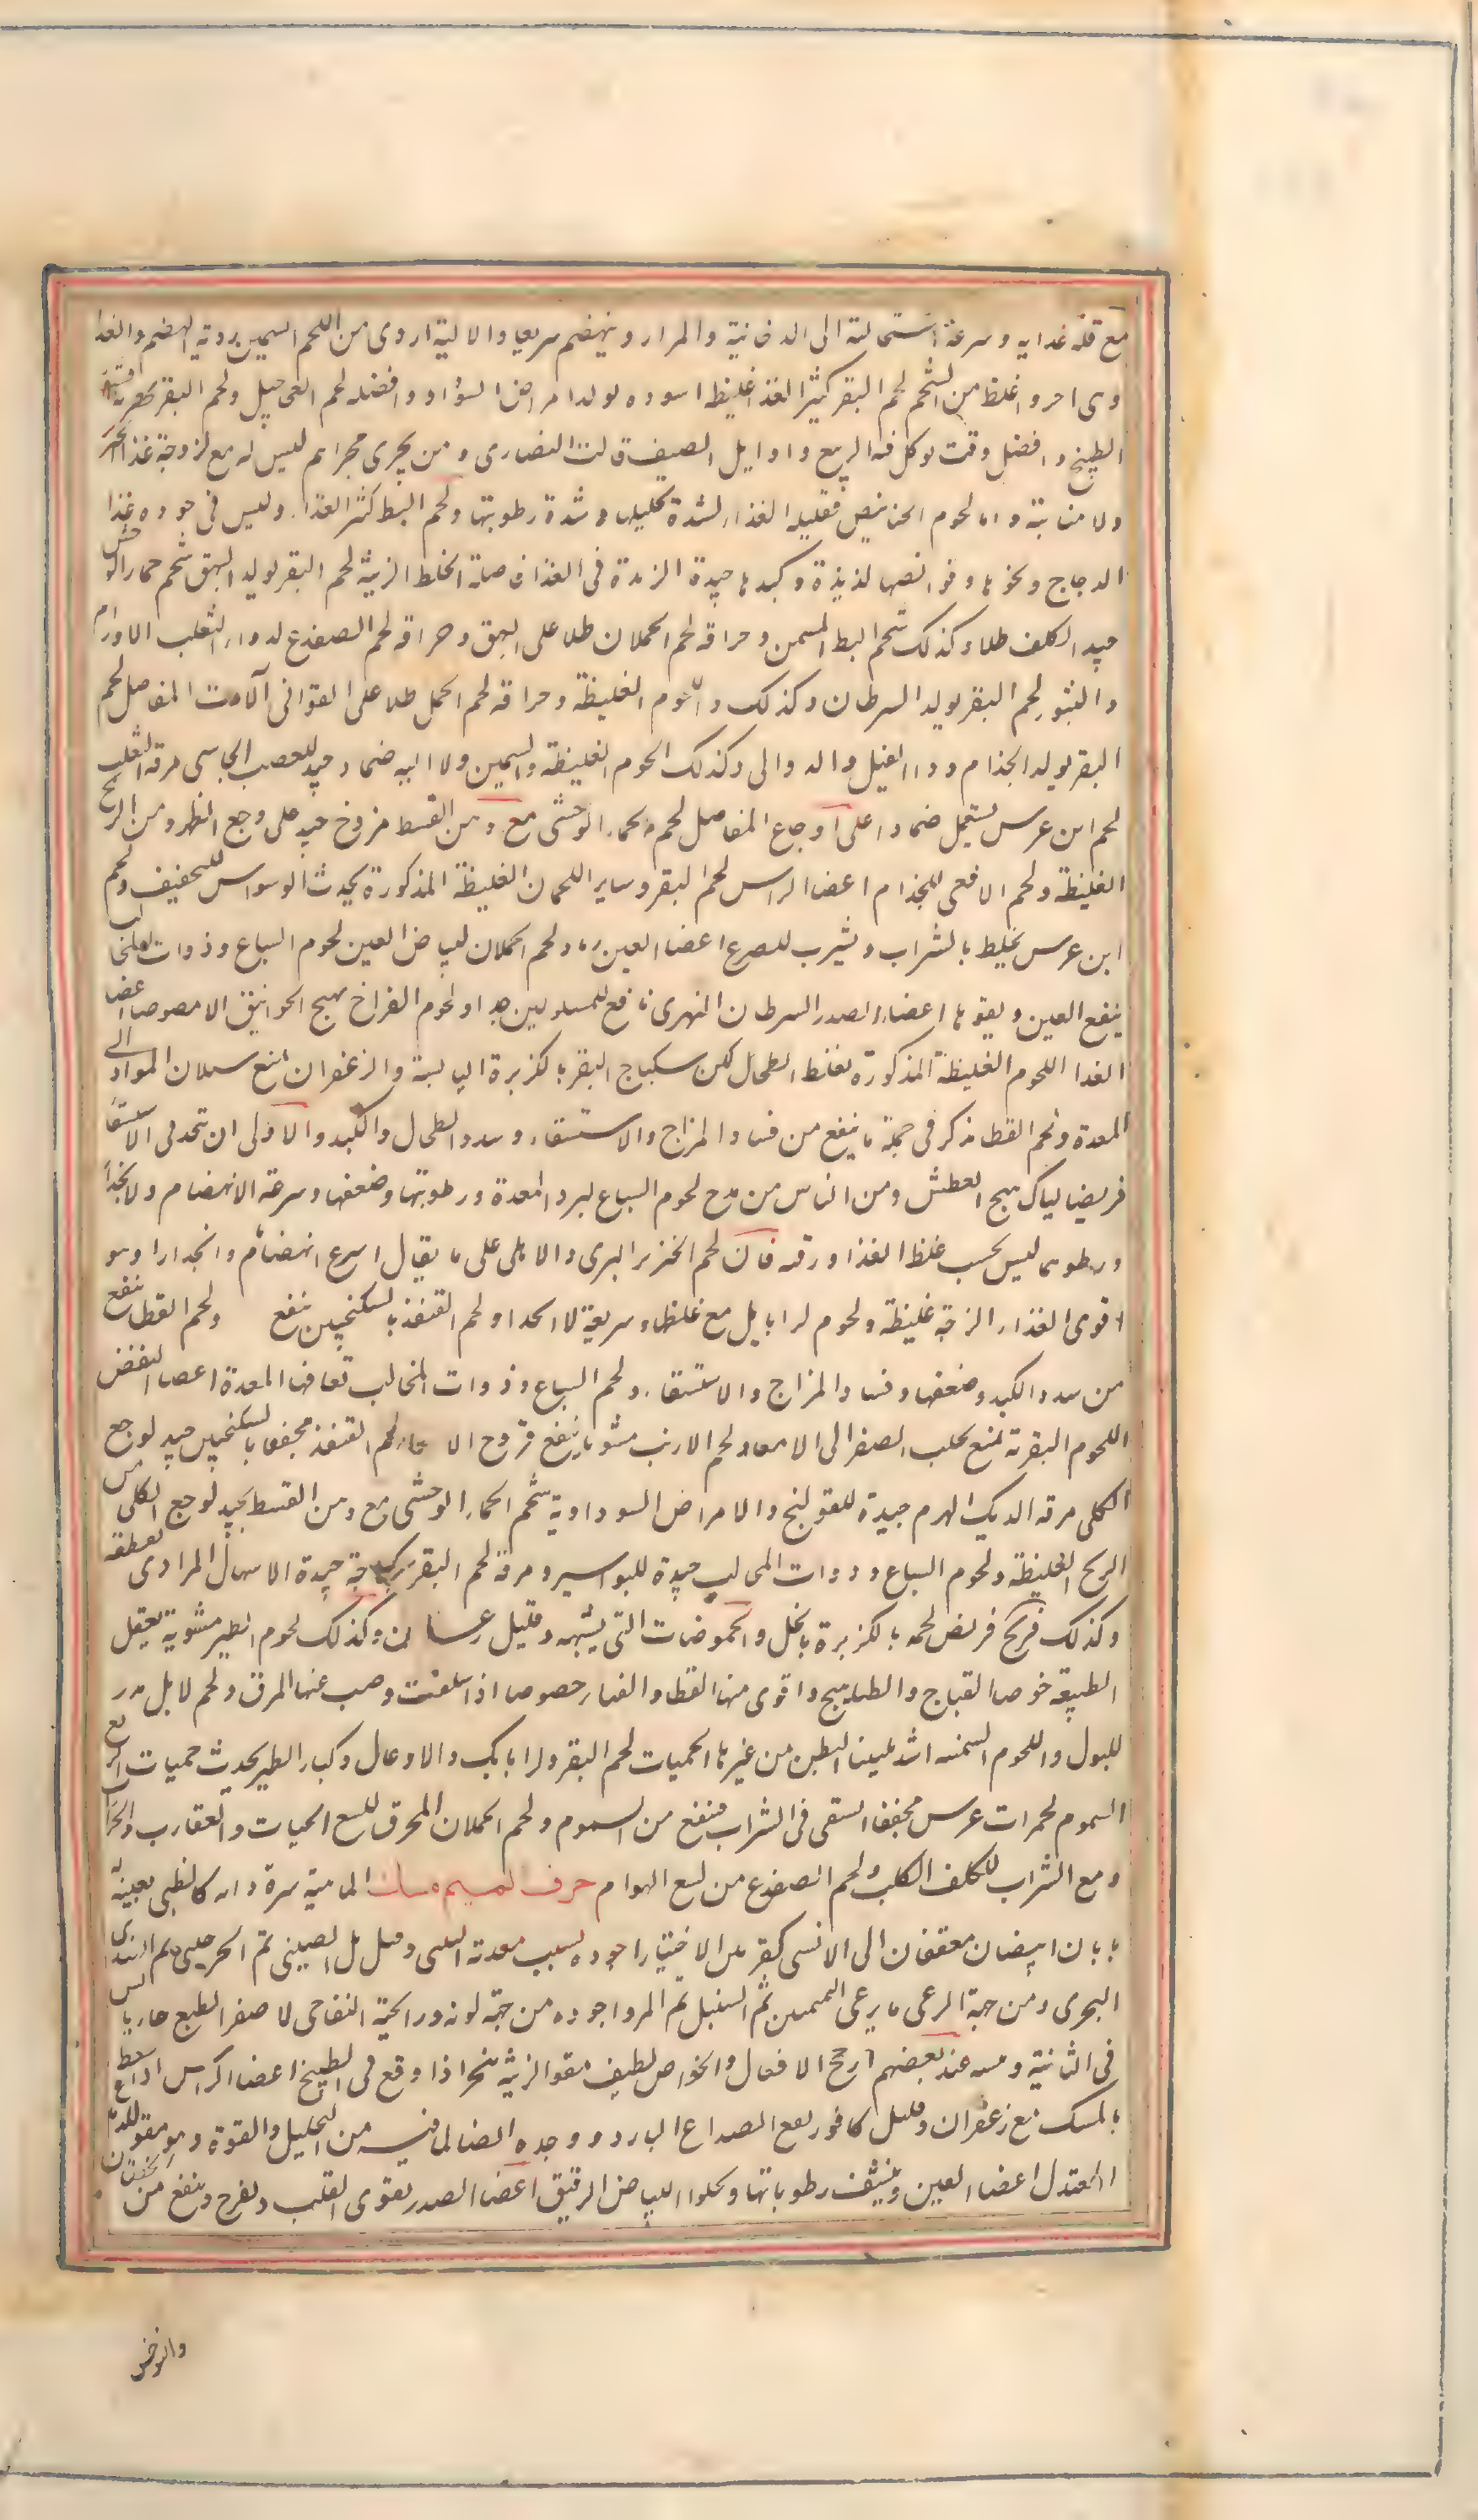 مع قلة غدايه وسرعة استحالته الى الدخانية والمرار وينهضم سريعا والالية اردى من اللحم السمين ردية الهضم والغدا
وهى احر واغلظ من الشحم لحم البقر كثير الغذا غليظه اسوده يولد امراض السوداء وافضله لحم العجاجيل ولحم البقر
الطبيخ وافضل وقت يوكل فيه الربيع واوايل الصيف قالت النصارى ومن يجرى مجراهم ليس له مع لزوجة غذا
ولا متانته واما لحوم الخنانيص فقليلة الغذاء لشدة تحليلها وشدة رطوبتها ولحم البط كثير الغذاء وليس فى جوده غذا
الدجاج ونحوها وقوانصها لذيذة وكبدها جيدة الزينة لحم البقر يولد البهق شحم حمار الوحش
جيد الكلف طلاء وكذلك شحم البط المسمن وحراقه لحم الحملان طلا على البهق وحراقه لحم الضفدع لدواء الثعلب الاورام
والبثور لحم البقر يولد السرطان وكذلك اللحوم الغليظة وحراقه لحم الحمل طلا على القوابى آلات المفاصل لحم
البقر يولد الجذام وداء الفيل والدوالى وكذلك اللحوم الغليظة والسمين ولا اليه ضماد جيد للعصب الجاسى مرقة الثعلب
لحم ابن عرس يستعمل ضمادا على اوجاع المفاصل لحم حمار الوحشى مع دهن القسط مروخ جيد على وجع الظهر ومن الريح
الغليظة ولحم الافعى للجذام اعضا الراس لحم البقر وساير اللحمان الغليظة المذكورة يحدث الوسواس للتجفيف ولحم
ابن عرس يخلط بالشراب ويشرب للصرع اعضا العين رماد لحم الحملان لبياض العين لحوم السباع وذوات المخالب
ينفع العين ويقويها اعضاء الصدر السرطان النهرى نافع للمسلولين جدا ولحوم الفراخ يهيج الخوانيق الا مصوصا اعضا
الغدا اللحوم الغليظة المذكورة تغلظ الطحال لكن سكباج البقر بالكزبرة اليابسة والزعفران تمنع سيلان المواد الى
المعدة ولحم القطا مذكر فى جملة ما ينفع من فساد المزاج والاستسقاء وسدد الطحال والكبد والاولى ان تتخذ فى الاستسقا
قريصا ليلا يهيج العطش ومن الناس من مدح لحوم السباع لبرد المعدة ورطوبتها وضعفها وسرعة الانهضام والانجدار
ورطوبتها ليس بحسب غلظ الغذا ورقته فان لحم الخنزير البرى والاهلى على ما يقال اسرع انهضاما وانحدارا وهو
اقوى الغذاء الزجة غليظة ولحوم الايايل مع غلظها سريعة الانحدار ولحم القنفذ بالسكنجبين ينفع ولحم القطا ينفع
من سدد الكبد وضعفها وفساد المزاج والاستسقاء ولحم السباع وذوات المخالب تعافها المعدة اعضا النفض
اللحوم البقرية تمنع تحلب الصفرا الى الامعا ولحم الارنب مشويا ينفع قروح الامعاء لحم القنفذ مجففا بالسكنجبين جيد لوجع
الكلى مرقة الديك الهرم جيدة للقولنج والامراض السوداوية شحم الحمار الوحشى مع دهن القسط جيد لوجع الكلى من
الريح الغليظة ولحوم السباع وذوات المخالب جيدة للبواسير ومرقة لحم البقر سكباجة جيدة الاسهال المرارى
وكذلك قريص لحمه بالكزبرة بالخل والحموضات التى تشبهه وقليل زعفران وكذلك لحوم الطير مشوية تعقل
الطبيعة خوصا القباج والطياهيج واقوى منها القطا والقنابر خصوصا اذا سلقت وصب عنها المرق ولحم الابل يدر
للبول واللحوم السمنه اشد تليينا للبطن من غيرها الحميات لحم البقر والايايل والاوعال وكبار الطير يحدث حميات الربع
السموم لحم ابن عرس مجففا استقى فى الشراب فينفع من السموم ولحم الحملان المحرق للسع الحيات والعقارب والجرارات
ومع الشراب للكلف الكلب ولحم الضفدع من لسع الهوام حرف الميم مسك الماهية سرة دابه كالظبى بعينه
نابان ابيضان معقفان الى الانسى كقرنين الاختيار اجوده بسبب معدنه التبتى وقيل بل الصينى ثم الجرجيرى ثم الهندى
البحرى ومن جهة الرعى ما يرعى البهمنين ثم السنبل ثم المر واجوده من جهة لونه ورايحته التفاحى الاصفر الطبع حار يابس
فى الثانية ويبسه عند بعضهم ارجح الافعال والخواص لطيف مقو الزينة يبخر اذا وقع فى الطبيخ اعضا الراس اذا سعط
بالمسك مع زعفران وقليل كافور نفع الصداع البارد ووحده ايضا لما فيه من التحليل والقوة وهو مقو للدماغ
المعتدل اعضا العين وينشف رطوباتها ويجلوا البياض الرقيق اعضا الصدر يقوى القلب ويفرح وينفع من الخفقان
والتوحش